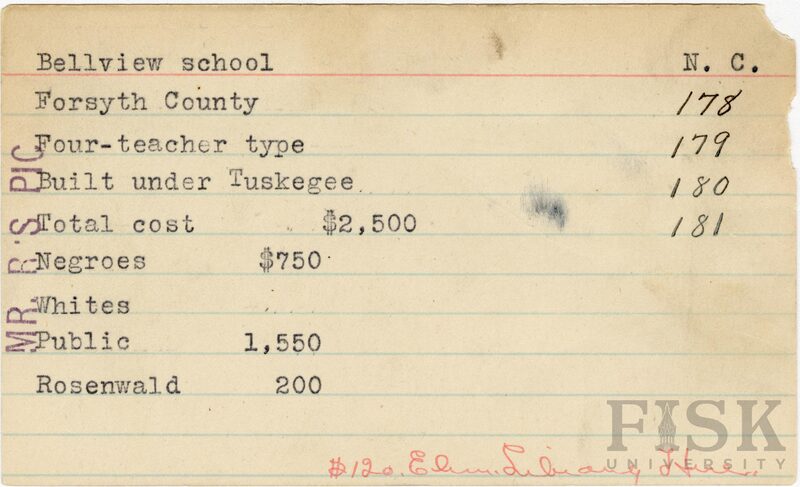 Bellview school N. C.
Forsyth County 178
Four-teacher type 179
Built under Tuskegee 180
Total cost $2,500 181
Negroes $750
Whites
Public 1,550
Rosenwald 200
$120. Elem. Library
MR. R'S PIC
FISK
UNIVERSITY